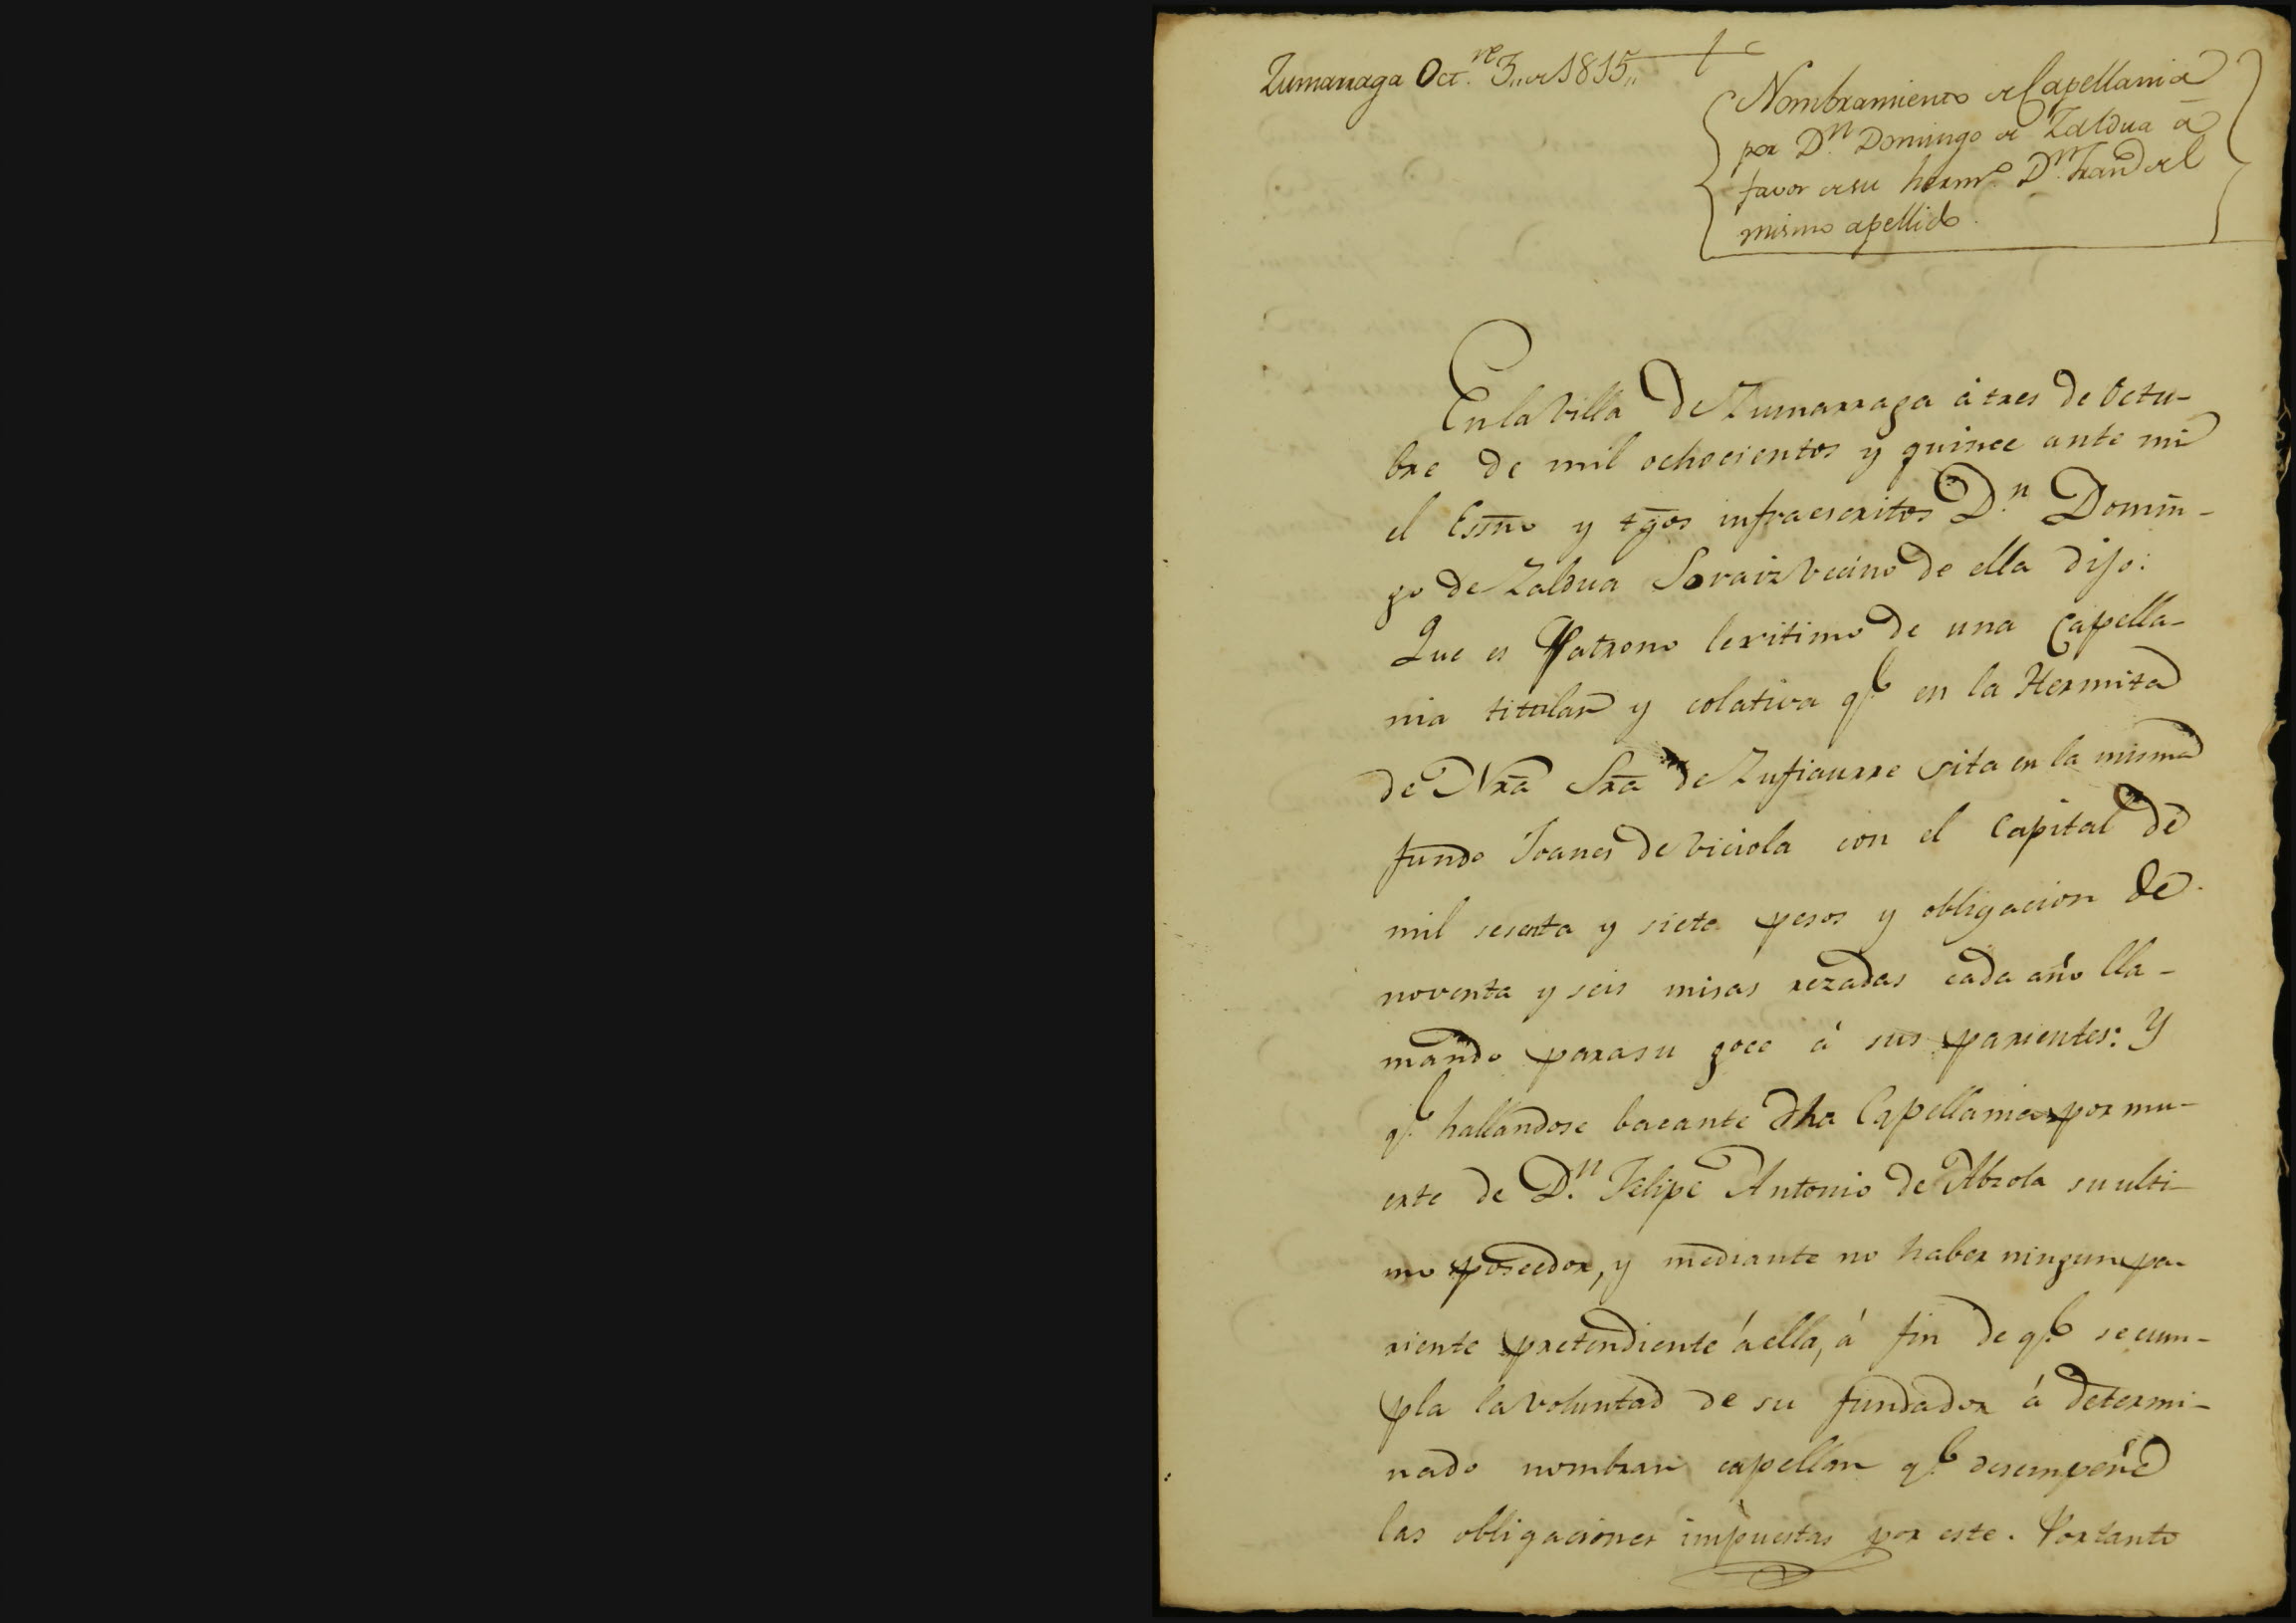 Zumarraga Oct.re 3,, de 1815,,
Nombramiento de Capellania
por D.n Domingo de Zaldua â
favor de su herm.o D.n Fran.co del
mismo apellido.
En la Villa de Zumarraga á tres de Octu-
bre de mil ochocientos y quince ante mi
el Essno y tgos infraescritos D.n Domin-
go de Zaldua Soraiz vecino de ella dijo:
Que es Patrono lexitimo de una Capella-
nia titular y colativa q.e en la Hermita
de Nra Sra de Zufiaurre sita en la misma
fundo Joanes de Viciola con el Capital de
mil sesenta y siete pesos y obligacion de
noventa y seis misas rezadas cada año lla-
mando para su goce á sus parientes: Y
q.e hallandose bacante dha Capellania por mu-
erte de D.n Felipe Antonio de Abzola su ulti-
mo poseedor, y mediante no haber ningun pa-
riente pretendiente á ella, á fin de q.e se cum-
pla la voluntad de su fundador á determi-
nado nombrar capellan q.e desempeñe
las obligaciones impuestas por este. Por tanto